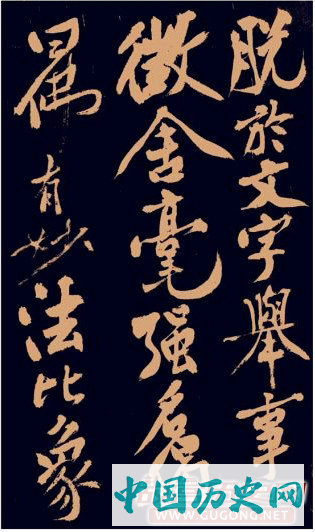 脱於文字舉事
微舍毫强
有妙法比象
中国历史网
WWW.GUGONG.NET